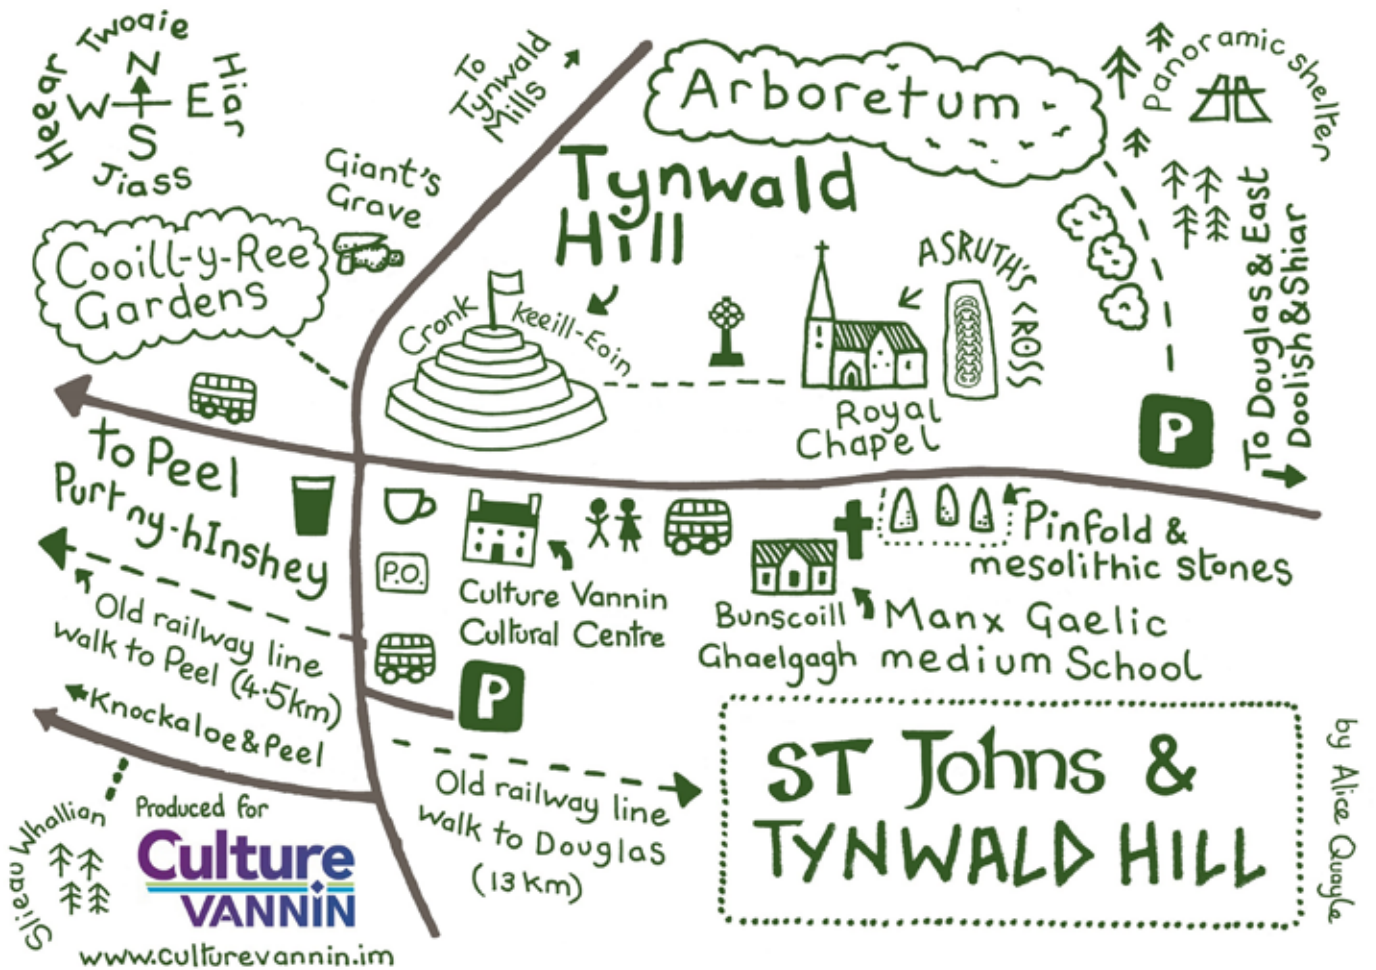 Twoaie
Heear
Hiar
N
W E
S
Jiass
To
Tynwald
Mills
Arboretum
Panoramic shelter
Giant's
Grave
Tynwald
Hill
Cooill-y-Ree
Gardens
Cronk Keeill-Eoin
ASRUTH'S CROSS
Royal
Chapel
P
To Douglas & East
Doolish & Shiar
to Peel
Purt ny-hInshey
P.O.
Culture Vannin
Cultural Centre
Bunscoill
Ghaelgagh
Manx Gaelic
medium School
Pinfold &
mesolithic stones
Old railway line
walk to Peel (4.5km)
Knockaloe & Peel
P
Old railway line
walk to Douglas
(13 km)
Slieau Whallian
Produced for
Culture
VANNIN
www.culturevannin.im
ST Johns &
TYNWALD HILL
by Alice Quayle